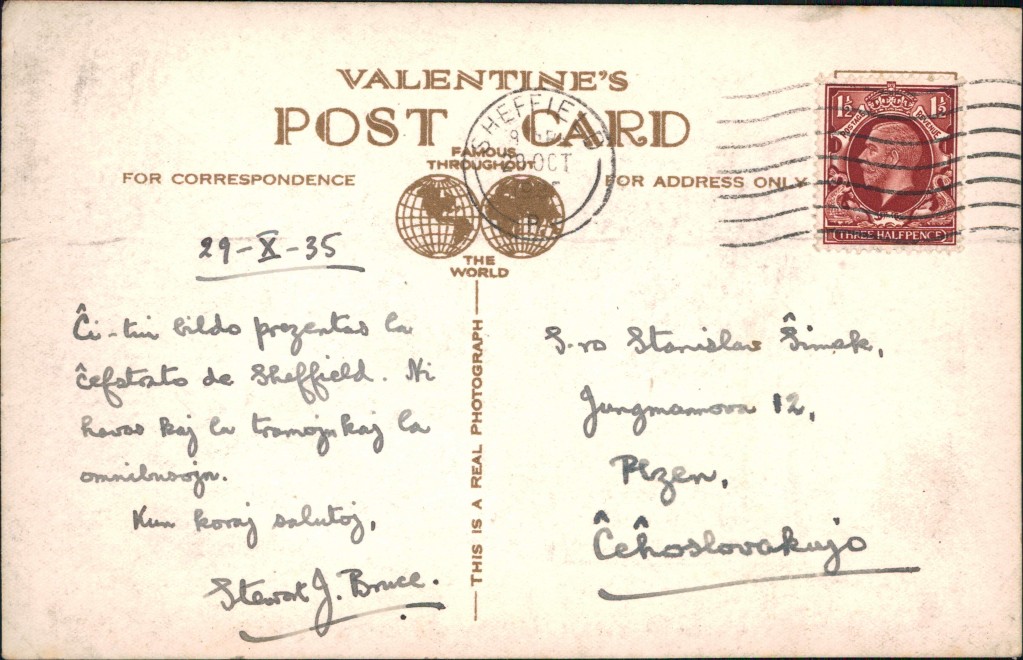 VALENTINE'S
POST CARD
FAMOUS
THROUGHOUT
THE
WORLD
FOR CORRESPONDENCE
FOR ADDRESS ONLY
SHEFFIELD
OCT
1½ 1½
POSTAGE REVENUE
THREE HALFPENCE
29-X-35
Ĉi-tiu bildo prezentas la
ĉefstrato de Sheffield. Ni
havas kaj la tramojn kaj la
omnibusojn.
Kun koraj salutoj,
Stewart J. Bruce.
THIS IS A REAL PHOTOGRAPH
S-ro Stanislav Ŝimek,
Jungmannova 12,
Plzen,
Ĉeĥoslovakujo